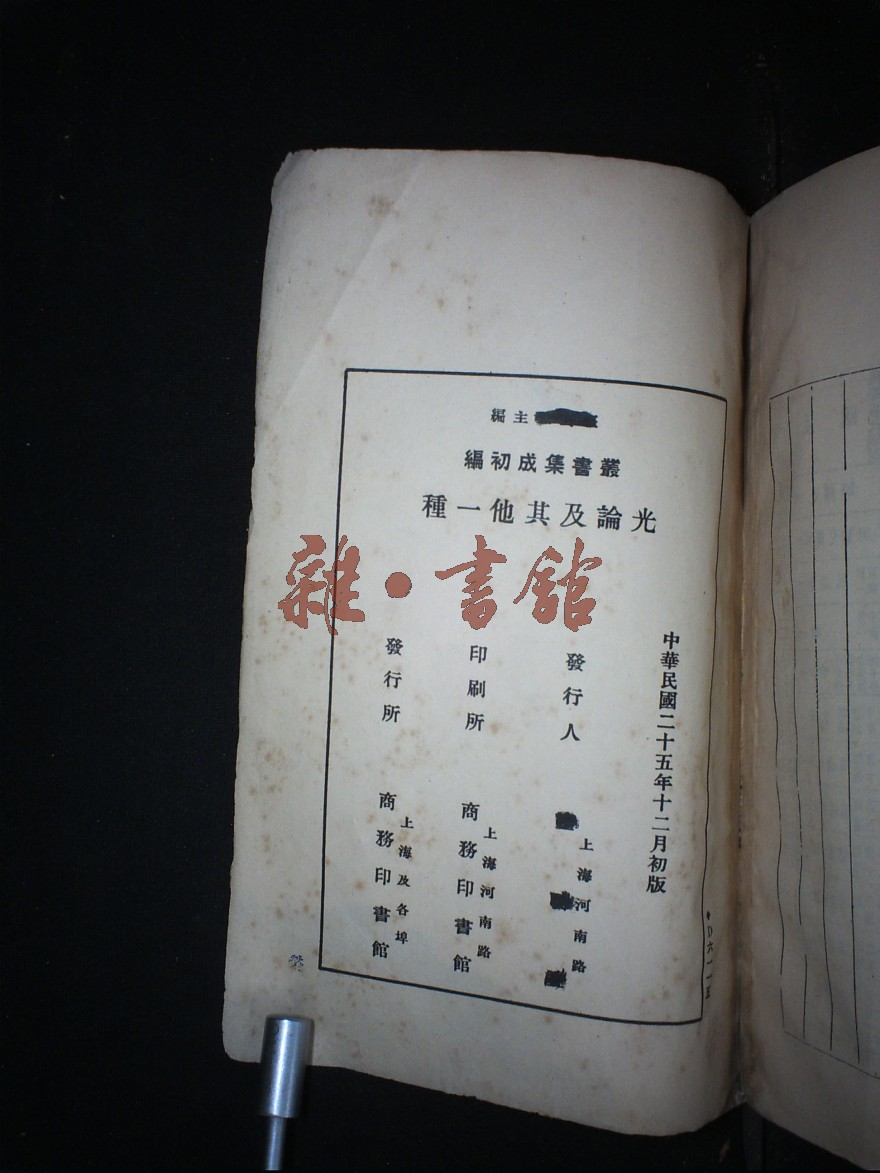 主編
叢書集成初編
光論及其他一種
雜・書館
中華民國二十五年十二月初版
發行人
上海河南路
印刷所
上海河南路
商務印書館
發行所
上海及各埠
商務印書館